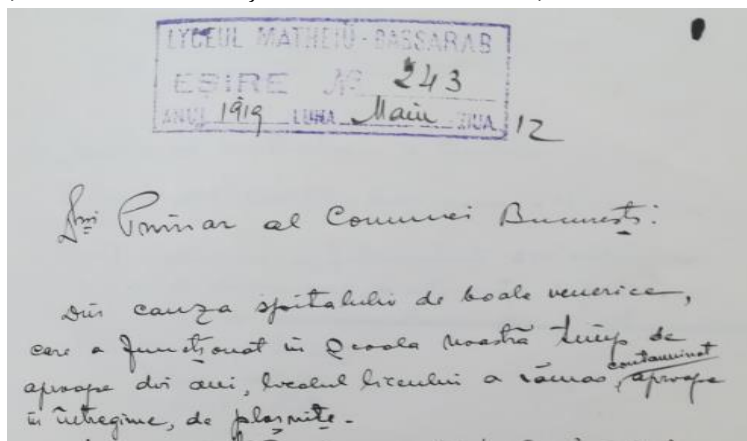 LYCEUL MATHEIŬ-BASSARAB
EȘIRE Nº 243
ANUL 1919 LUNA Maiu ZIUA 12
Dlui Primar al Comunei București:
Din cauza spitalului de boale venerice,
care a funcționat în școala noastră timp de
aproape doi ani, localul liceului a rămas, contaminat aproape
în întregime, de ploșnițe.